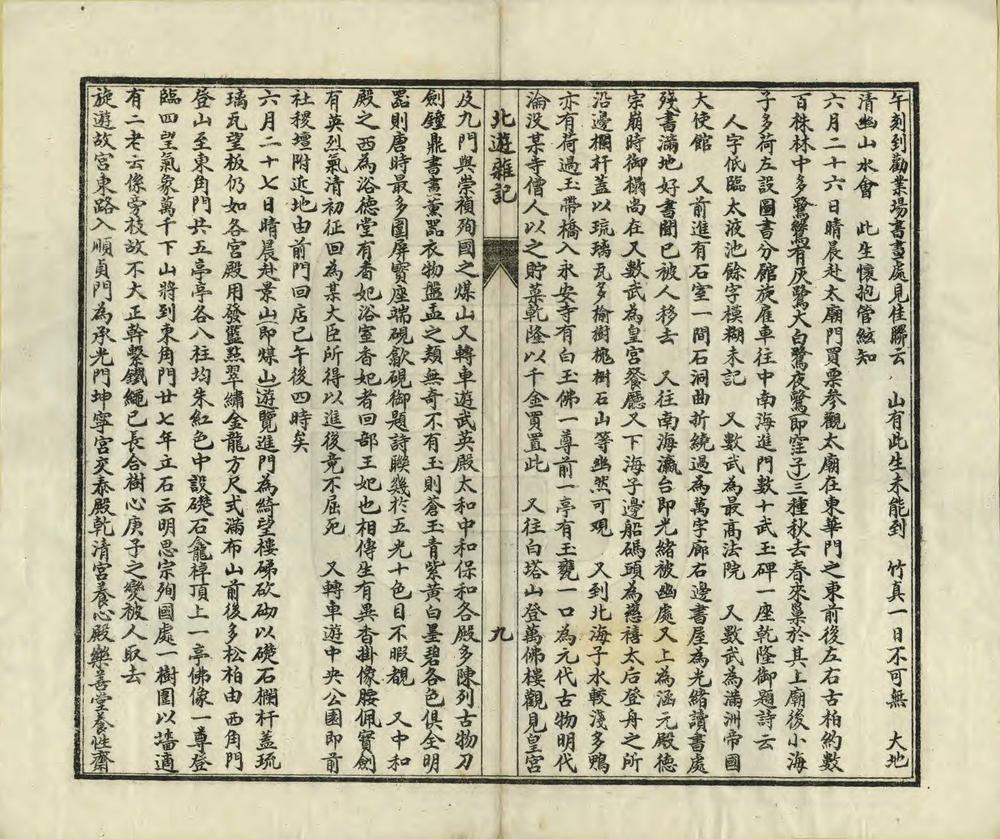 午刻到勸業場書畫處見佳聯云　山有此生未能到　竹真一日不可無　大地
清幽山水會　此生懷抱管絃知
六月二十六日晴晨赴太廟門買票參觀太廟在東華門之東前後左右古柏約數
百株林中多鷺鷥有灰鷺大白鷺夜鷺(即窪子)三種秋去春來巢於其上廟後小海
子多荷左設圖書分館旋雇車往中南海進門數十武玉碑一座乾隆御題詩云
人字低臨太液池餘字模糊未記　又數武為最高法院　又數武為滿洲帝國
大使館　又前進有石室一間石洞曲折繞過為萬字廊右邊書屋為光緒讀書處
殘書滿地好書聞已被人移去　又往南海瀛台即光緒被幽處又上為涵元殿德
宗崩時御榻尚在又數武為皇宮餐廳又下海子邊船碼頭為慈禧太后登舟之所
沿邊欄杆蓋以琉璃瓦多榆樹槐樹石山等幽然可觀　又到北海子水較淺多鴨
亦有荷過玉帶橋入永安寺有白玉佛一尊前一亭有玉甕一口為元代古物明代
淪沒某寺僧人以之貯菜乾隆以千金買置此　又往白塔山登萬佛樓觀見皇宮
北遊雜記　九
及九門與崇禎殉國之煤山又轉車遊武英殿太和中和保和各殿多陳列古物刀
劍鐘鼎書畫薰器衣物盤盂之類無奇不有玉則蒼玉青紫黃白墨碧各色俱全明
器則唐時最多圍屏寶座端硯歙硯御題詩聯幾於五光十色目不暇覩　又中和
殿之西為浴德堂有香妃浴室香妃者回部王妃也相傳生有異香掛像腰佩寶劍
有英烈氣清初征回為某大臣所得以進後竟不屈死　又轉車遊中央公園即前
社稷壇附近地由前門回店已午後四時矣
六月二十七日晴晨赴景山即煤山遊覽進門為綺望樓砩砍砌以礎石欄杆蓋琉
璃瓦望板仍如各宮殿用發藍點翠繡金龍方尺式滿布山前後多松柏由西角門
登山至東角門共五亭亭各八柱均朱紅色中設礎石龕禪頂上一亭佛像一尊登
臨四望氣象萬千下山將到東角門廿七年立石云明思宗殉國處一樹圍以墻適
有二老云係旁枝故不大正幹繫鐵繩已長合樹心庚子之變被人取去
旋遊故宮東路入順貞門為承光門坤寧宮交泰殿乾清宮養心殿樂善堂養性齋